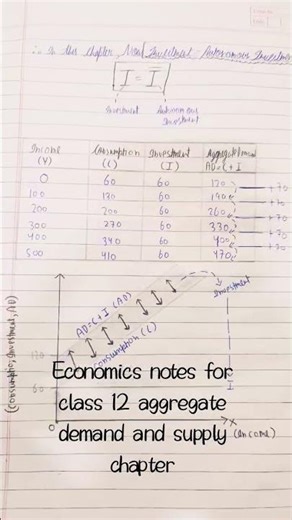 ∴ In this chapter, Investment - Autonomous Investment
I = Ī
Investment Autonomous
Investment
Income Consumption Investment Aggregate Demand
(Y) (C) (I) AD=C+I
0 60 60 120
100 130 60 190 +70
200 200 60 260 +70
300 270 60 330 +70
400 340 60 400 +70
500 410 60 470 +70
Investment
AD=C+I (AD)
Consumption (C)
(Consumption, Investment, AD)
120
60
I
0
X
(Income)
Economics notes for
class 12 aggregate
demand and supply
chapter